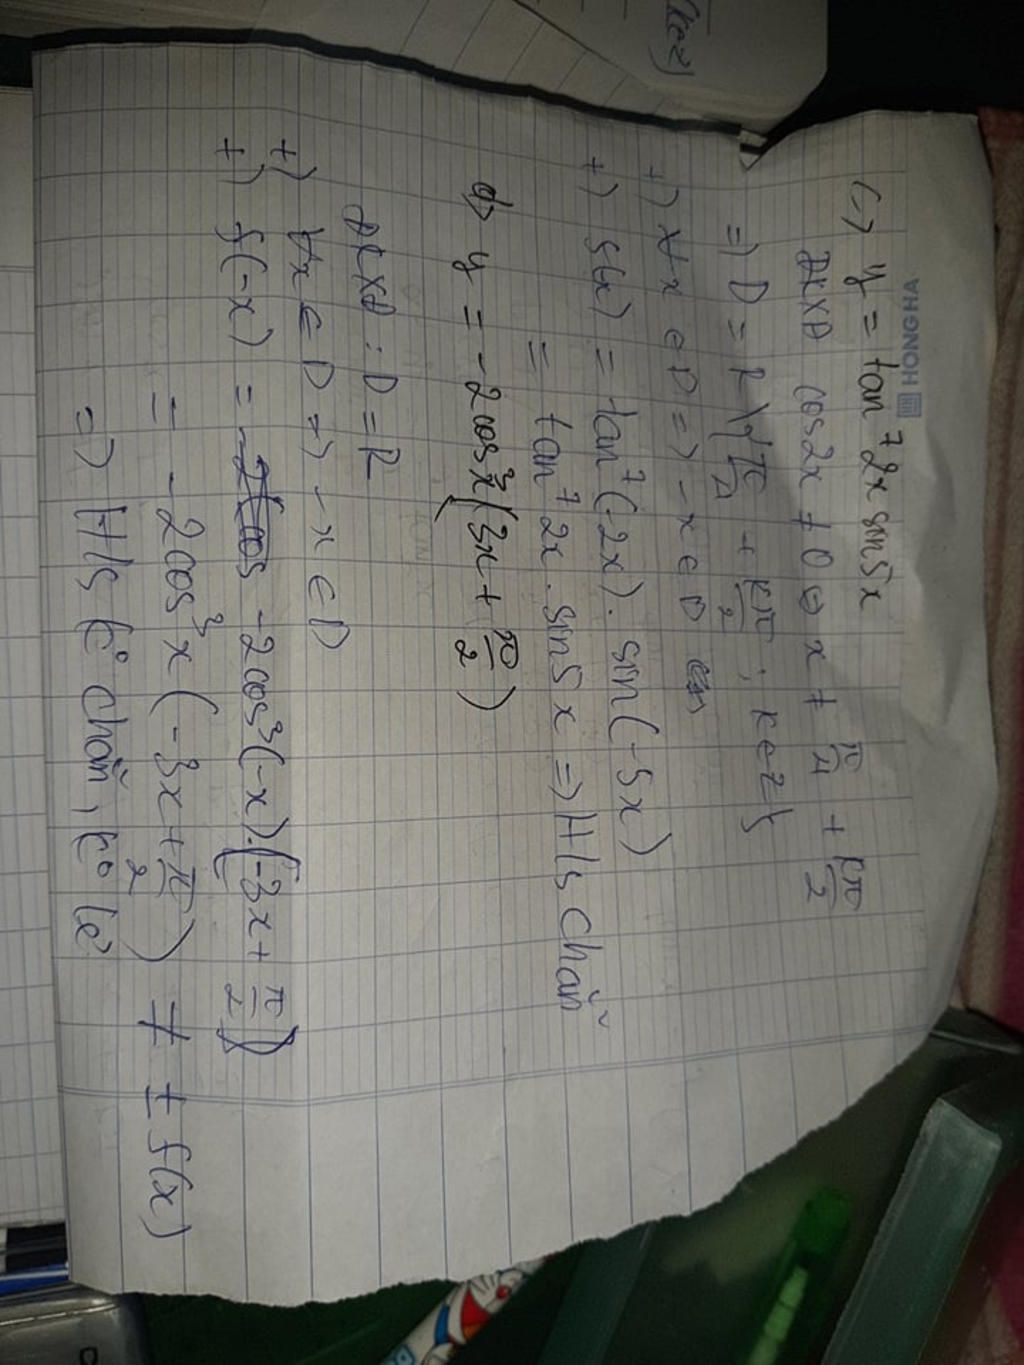 HONG HA
c> y = tan⁷2x sin5x
ĐKXĐ cos2x ≠ 0 ⇔ x ≠ π/4 + kπ/2
=) D = R \ {π/4 + kπ/2 ; k∈Z}
+) ∀x ∈ D => -x ∈ D
+) f(x) = tan⁷(-2x). sin(-5x)
= tan⁷2x. sin5x => H/s chẵn
d> y = -2cos³x(3x + π/2)
ĐKXĐ : D = R
+) ∀x ∈ D => -x ∈ D
+) f(-x) = -2cos³(-x).(-3x + π/2)
= -2cos³x(-3x + π/2) ≠ ± f(x)
=> H/s k° chẵn, k° lẻ